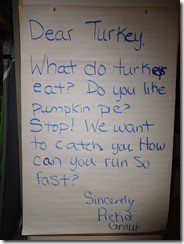 Dear Turkey,
What do turkeys
eat? Do you like
pumpkin pie?
Stop! We want
to catch you. How
can you run so
fast?
Sincerely
PreKa
Group